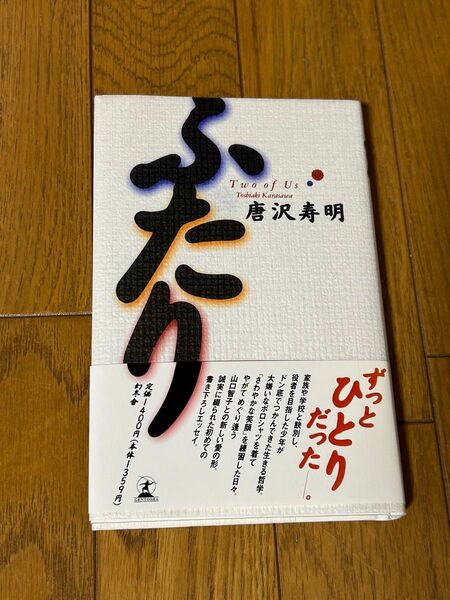 ふたり
Two of Us
Toshiaki Karasawa
唐沢寿明
ずっと
ひとり
だった――。
家族や学校と訣別し、
役者を目指した少年が
ドン底でつかんできた生きる哲学。
大嫌いなポロシャツを着て
「さわやかな笑顔」を練習した日々。
やがてめぐり逢う
山口智子との新しい愛の形。
誠実に綴られた初めての
書き下ろしエッセイ。
定価1400円(本体1359円)
幻冬舎
GENTOSHA